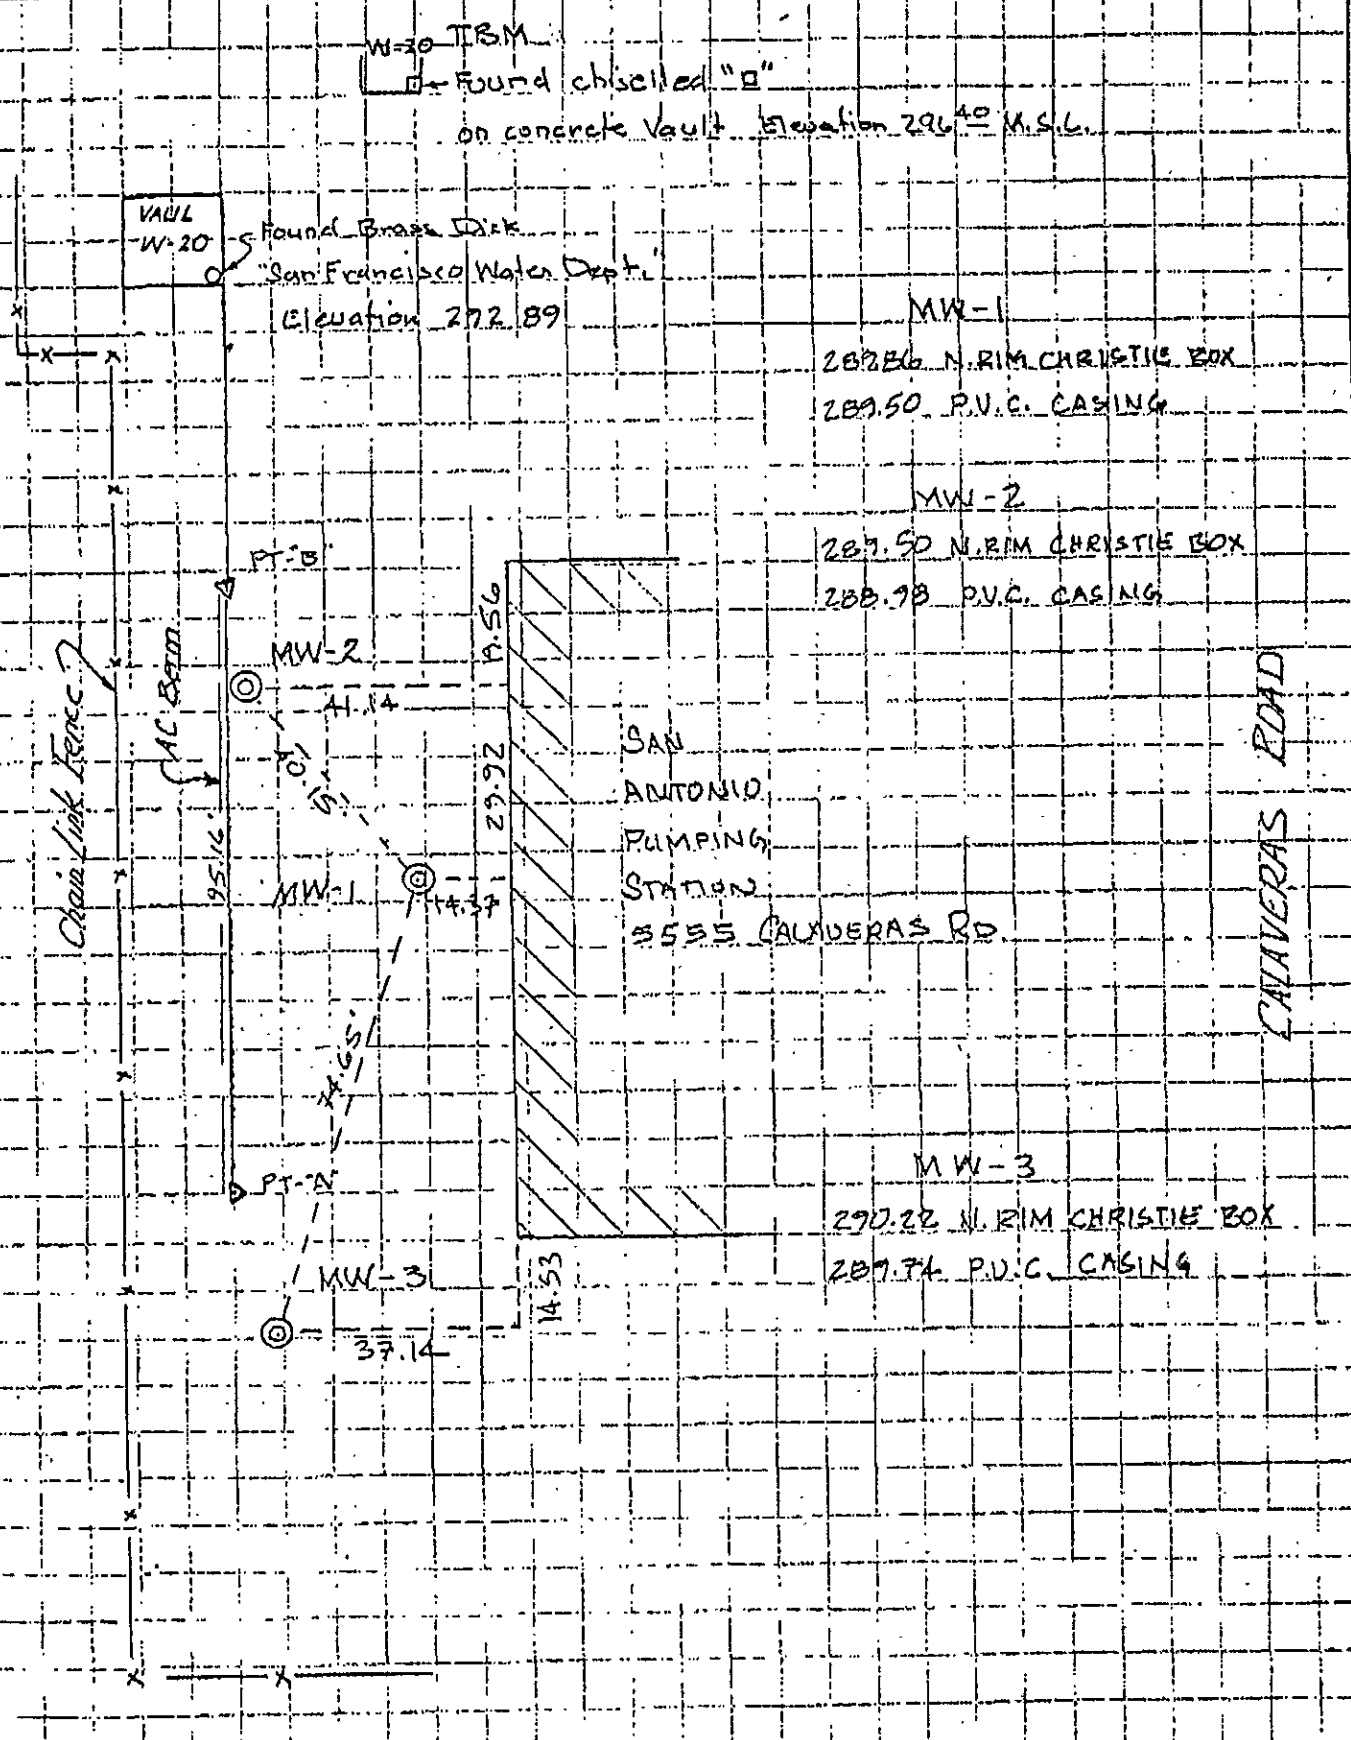 W-20 T.B.M.
Found chiselled "□"
on concrete Vault Elevation 296 40 M.S.L.
VAUL
W-20
Found Brass Disk
"San Francisco Water Dept."
Elevation 292.89
MW-1
289.86 N. RIM CHRISTIE BOX
289.50 P.V.C. CASING
MW-2
289.50 N. RIM CHRISTIE BOX
288.98 P.V.C. CASING
PT-"B"
19.56
MW-2
41.14
Chain Link Fence
AC Berm
29.92
SAN
ANTONIO
PUMPING
STATION
5555 CALAVERAS RD.
CALAVERAS ROAD
95.16'
MW-1
14.37
PT-"A"
MW-3
290.22 N. RIM CHRISTIE BOX
289.74 P.V.C. CASING
MW-3
14.53
37.14